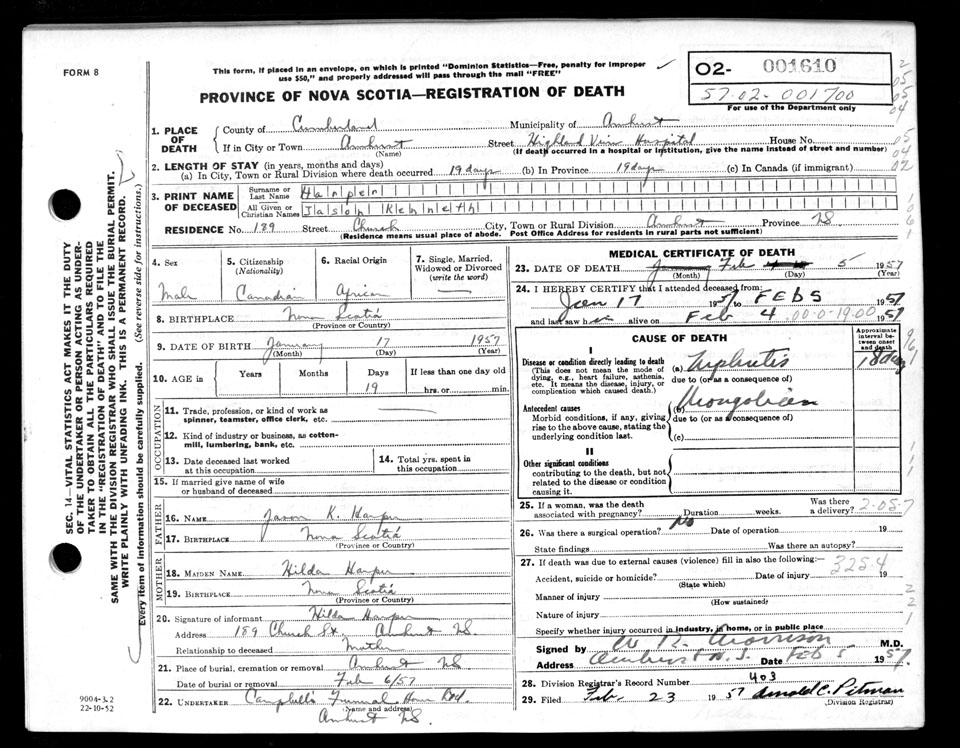 FORM 8
This form, if placed in an envelope, on which is printed "Dominion Statistics—Free, penalty for improper
use $50," and properly addressed will pass through the mail "FREE"
O2- 001610
57-02-001700
For use of the Department only
PROVINCE OF NOVA SCOTIA—REGISTRATION OF DEATH
1. PLACE OF DEATH
County of Cumberland Municipality of Amherst
If in City or Town Amherst Street Highland View Hospital House No.
(Name) (If death occurred in a hospital or institution, give the name instead of street and number)
2. LENGTH OF STAY (in years, months and days)
(a) In City, Town or Rural Division where death occurred 19 days (b) In Province 19 days (c) In Canada (if immigrant)
3. PRINT NAME OF DECEASED
Surname or Last Name Harper
All Given or Christian Names Jason Kenneth
RESIDENCE No. 189 Street Church City, Town or Rural Division Amherst Province NS
(Residence means usual place of abode. Post Office Address for residents in rural parts not sufficient)
4. Sex
Male
5. Citizenship
(Nationality)
Canadian
6. Racial Origin
African
7. Single, Married,
Widowed or Divorced
(write the word)
—
8. BIRTHPLACE Nova Scotia
(Province or Country)
9. DATE OF BIRTH January 17 1957
(Month) (Day) (Year)
10. AGE in Years Months Days If less than one day old
19 hrs. or min.
OCCUPATION
11. Trade, profession, or kind of work as
spinner, teamster, office clerk, etc.
12. Kind of industry or business, as cotton-
mill, lumbering, bank, etc.
13. Date deceased last worked
at this occupation
14. Total yrs. spent in
this occupation
15. If married give name of wife
or husband of deceased
FATHER
16. NAME Jason K. Harper
17. BIRTHPLACE Nova Scotia
(Province or Country)
MOTHER
18. MAIDEN NAME Hilda Harper
19. BIRTHPLACE Nova Scotia
(Province or Country)
20. Signature of informant Hilda Harper
Address 189 Church St. Amherst NS.
Relationship to deceased Mother
21. Place of burial, cremation or removal Amherst NS
Date of burial or removal Feb 6/57
22. UNDERTAKER Campbell's Funeral Home
(Name and address)
Amherst NS.
MEDICAL CERTIFICATE OF DEATH
23. DATE OF DEATH Feb 5 1957
(Month) (Day) (Year)
24. I HEREBY CERTIFY that I attended deceased from:
Jan 17 1957 to FEB 5 1957
and last saw h alive on Feb 4 1957
CAUSE OF DEATH
Approximate
interval be-
tween onset
and death
I
Disease or condition directly leading to death
(This does not mean the mode of
dying, e.g., heart failure, asthenia,
etc. It means the disease, injury, or
complication which caused death.)
(a) 18 days
due to (or as a consequence of)
Antecedent causes
Morbid conditions, if any, giving
rise to the above cause, stating the
underlying condition last.
(b) Mongolian
due to (or as a consequence of)
(c)
II
Other significant conditions
contributing to the death, but not
related to the disease or condition
causing it.
25. If a woman, was the death
associated with pregnancy? Duration weeks. Was there
a delivery? 2-057
26. Was there a surgical operation? No Date of operation 19
State findings Was there an autopsy?
27. If death was due to external causes (violence) fill in also the following:—
3254
Accident, suicide or homicide? Date of injury 19
(State which)
Manner of injury
(How sustained)
Nature of injury
Specify whether injury occurred in industry, in home, or in public place
Signed by W R. Morrison M.D.
Address Amherst N.S. Date FEB 5 1957.
28. Division Registrar's Record Number 403
29. Filed Feb 23 1957 Arnold C. Pitman
(Division Registrar)
SEC. 14—VITAL STATISTICS ACT MAKES IT THE DUTY
OF THE UNDERTAKER OR PERSON ACTING AS UNDER-
TAKER TO OBTAIN ALL THE PARTICULARS REQUIRED
IN THE "REGISTRATION OF DEATH" AND TO FILE THE
SAME WITH THE DIVISION REGISTRAR WHO SHALL ISSUE THE BURIAL PERMIT.
WRITE PLAINLY WITH UNFADING INK. THIS IS A PERMANENT RECORD.
Every item of information should be carefully supplied. (See reverse side for instructions.)
9004-3.2
22-10-52